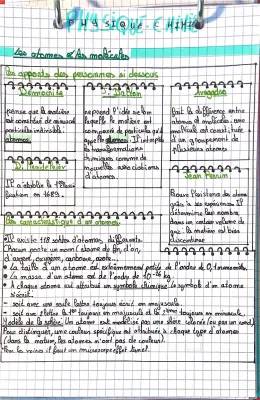 PHYSIQUE CHIMIE
Les atomes et les molécules
Les apports des personnes ci dessous
Démocrite
pense que la matière
est constituée de minuscules
particules invisibles :
atomes.
D. Mendeleïev
Il a établi la classi-
fication en 1869.
J. Dalton
reprend l'idée selon
laquelle la matière est
composée de particules qu'il
appelle atomes. Il interprète
les transformations
chimiques comme de
nouvelles associations
d'atomes.
Avogadro
fait la différence entre
atomes et molécules : une
molécule est constituée
d'un groupement de
plusieurs atomes
Jean Perrin
Prouve l'existence des atomes
grâce à ses expériences. Il
détermine leur nombre
dans un certain volume de
gaz : la matière est bien
discontinue
Les caractéristiques d'un atome
Il existe 118 sortes d'atomes, différents.
Chaque sorte a un nom : atome de fer, d'or,
d'argent, d'oxygène, carbone, cuivre...
La taille d'un atome est extrêmement petite de l'ordre de 0,1 nanomètre.
La masse d'un atome est de l'ordre de 10-26 kg.
A chaque atome est attribué un symbole chimique. Le symbole d'un atome
s'écrit :
- soit avec une seule lettre toujours écrit en majuscule.
- soit avec 2 lettres la 1ère toujours en majuscule et la 2ème toujours en minuscule.
Modèle de la sphère : Un atome est modélisé par une sphère colorée (ou pas un rond).
Pour distinguer, une couleur spécifique est attribuée à chaque type d'atomes
(dans la nature, les atomes n'ont pas de couleur).
Pour les voir il faut un microscope à effet tunnel.